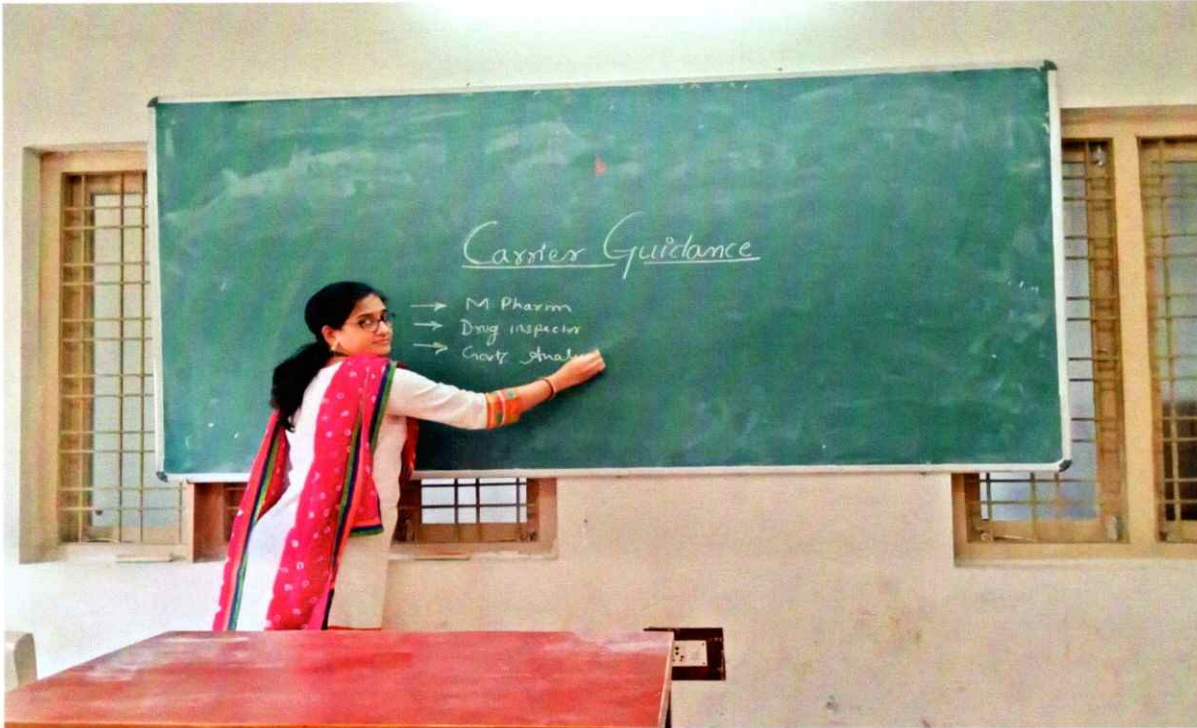 Carrier Guidance
→ M Pharm
→ Drug inspector
→ Govt